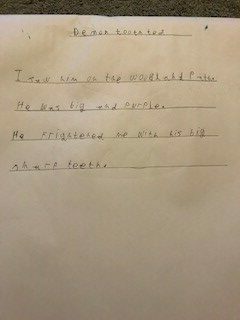 Demon toothted
I saw him on the woodland Path.
He was big and purple.
He Frightened me with his big
sharp tooth.